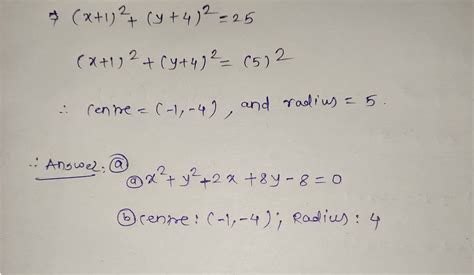 ⇒ (x+1)²+ (y+4)²=25
(x+1)²+(y+4)²= (5)²
∴ centre = (-1,-4), and radius = 5.
∴ Answer: ⓐ
ⓐ x²+y²+2x+8y-8=0
ⓑ centre: (-1,-4); Radius: 4